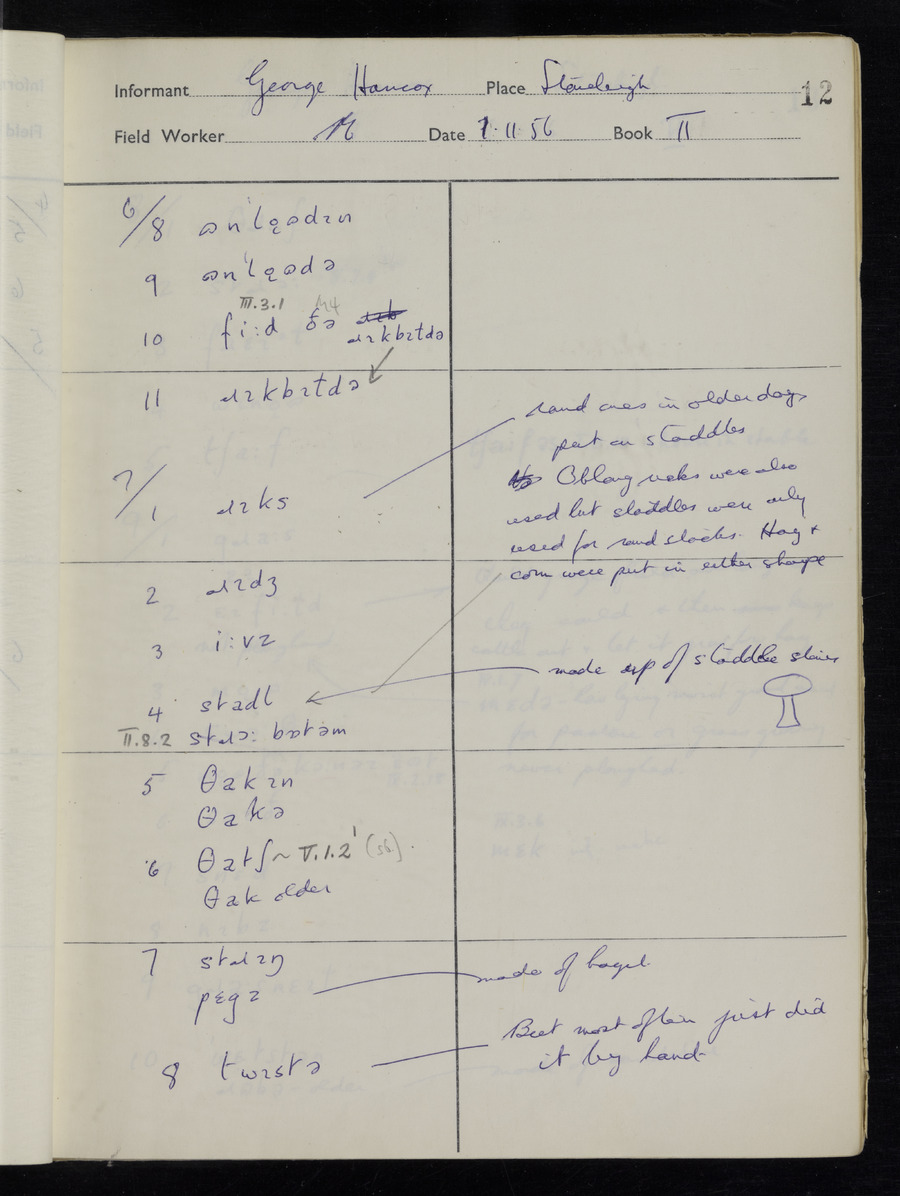 Informant George Hancox Place Stoneleigh 12
Field Worker Date 7.11.56 Book II
6/8
9
III.3.1
10 fi:d ðə ɹɪkbɪtdə
11 ɹɪkbɪtdə
round ones in older days
put on staddles
Oblong ricks were also
used but staddles were only
used for round stacks. Hay +
corn were put in either shape
7/1 ɹɪks
2 ɹɪdʒ
3 i:vz
made up of staddle stones
4 stadl
II.8.2 stɹɔ: bɒtəm
5 θakɪn
θakə
6 θatʃ ~ V.1.2
θak older
7 stɹɪŋ
pɛgz made of hazel
8 twɪstə But most often just did
it by hand